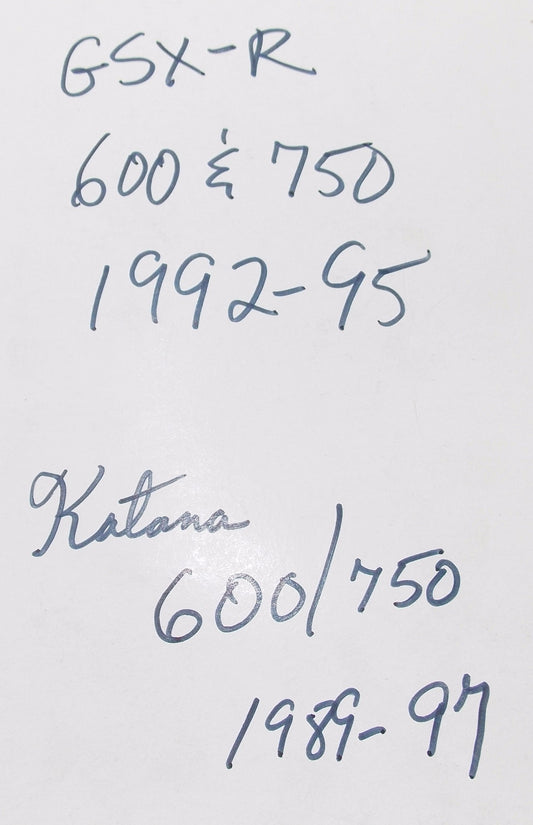 GSX-R
600 & 750
1992-95
Katana
600/750
1989-97